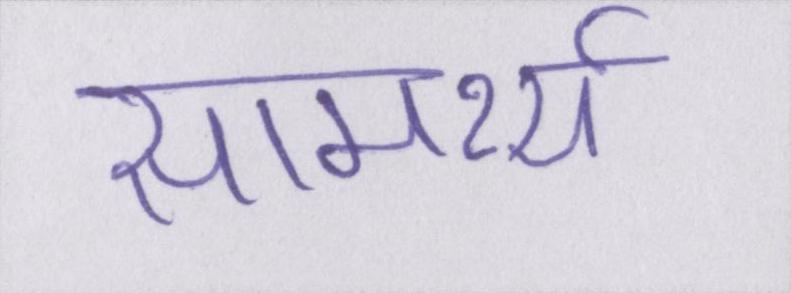 सामर्थ्य